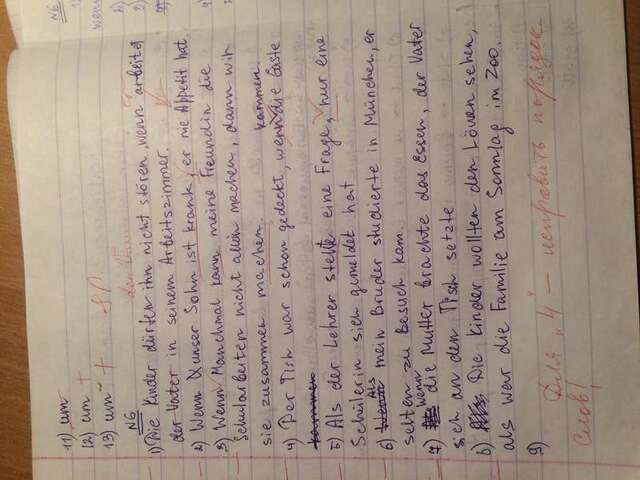 11) um
12) um +
13) um +
N6
1) Die Kinder dürfen ihn nicht stören, wenn arbeitet
der Vater in seinem Arbeitszimmer.
2) Wenn unser Sohn ist krank, er nie Appetit hat.
3) Wenn Manchmal kann meine Freundin die
Schularbeiten nicht allein machen, dann wir
sie zusammen machen.
4) Der Tisch war schon gedeckt, wenn die Gäste
kammen.
5) Als der Lehrer stellte eine Frage, nur eine
Schülerin sich gemeldet hat
6) Als mein Bruder studierte in München, er
selten zu Besuch kam.
7) wenn die Mutter brachte das Essen, der Vater
sich an den Tisch setzte
8) Die Kinder wollten den Löwen sehen,
als war die Familie am Sonntag im Zoo.
9)
Для "4" – исправить порядок
слов!